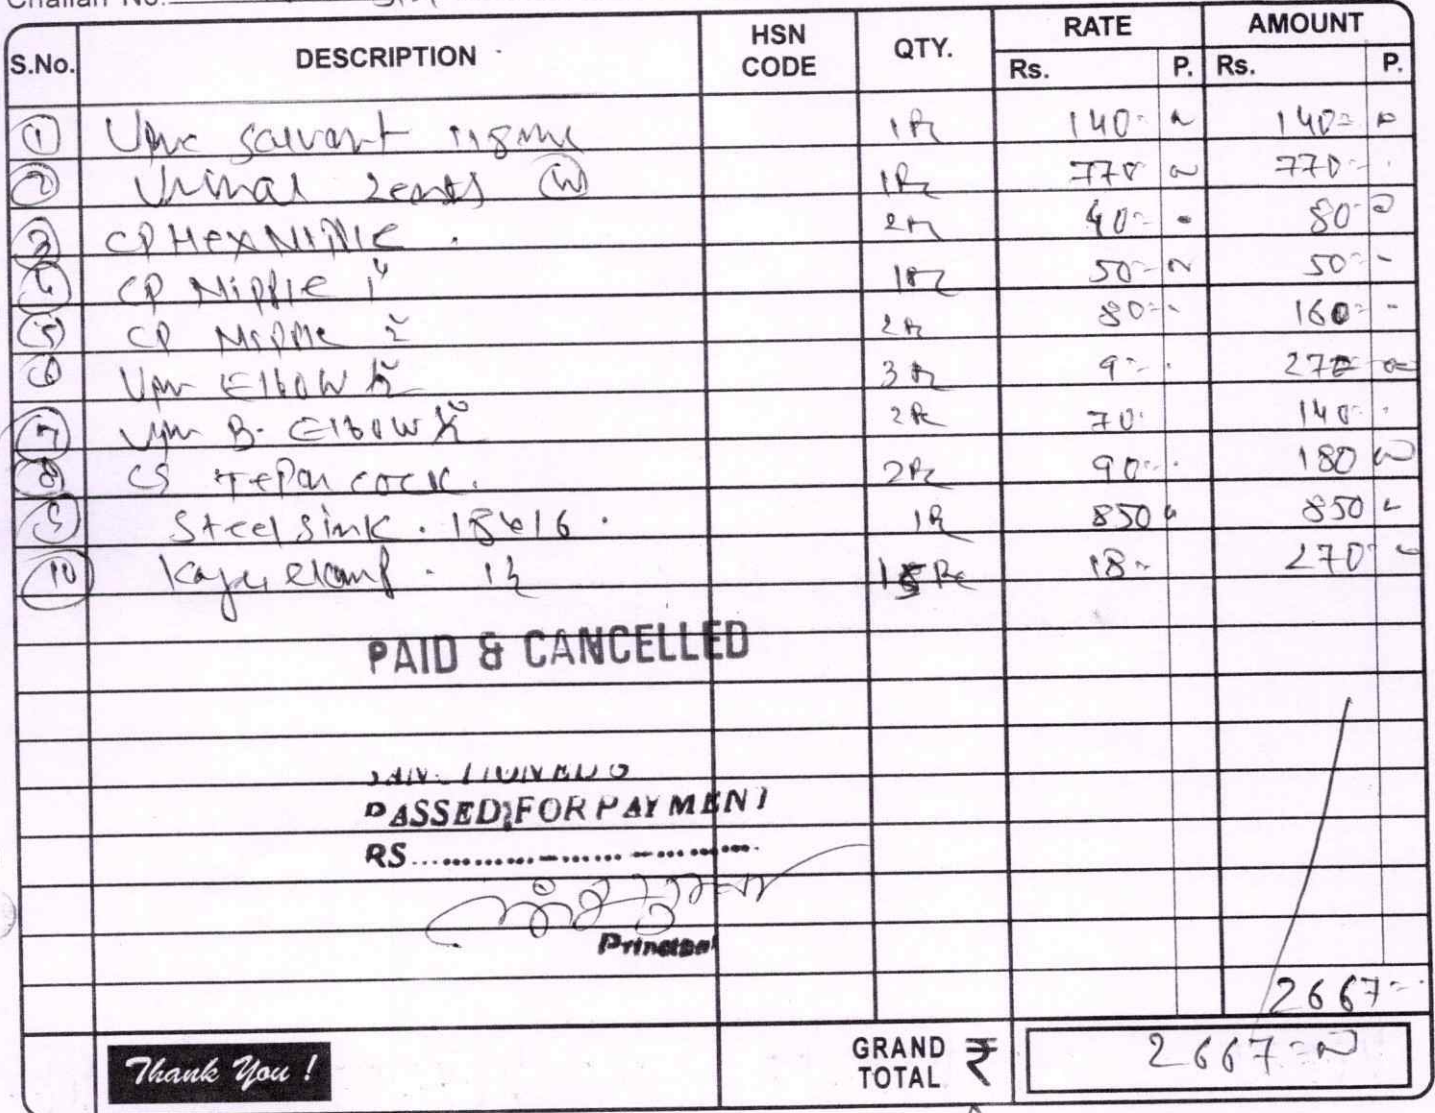 Challan No.
S.No. DESCRIPTION HSN CODE QTY. RATE Rs. P. AMOUNT Rs. P.
1 Upvc 118ml 1Pc 140 140
2 Urinal (W) 1Pc 770 770
3 CP Hex Nipple . 2Pc 40 80
4 CP Nipple 1" 1Pc 50 50
5 CP Nipple 2" 2Pc 80 160
6 Upvc Elbow ½" 3Pc 9 27
7 Upvc B. Elbow ½" 2Pc 70 140
8 cock. 2Pc 90 180
9 Steel Sink . 1Pc 850 850
10 15 Pc 18 270
PAID & CANCELLED
PASSED FOR PAYMENT
RS
Principal
2667
Thank You !
GRAND TOTAL ₹ 2667